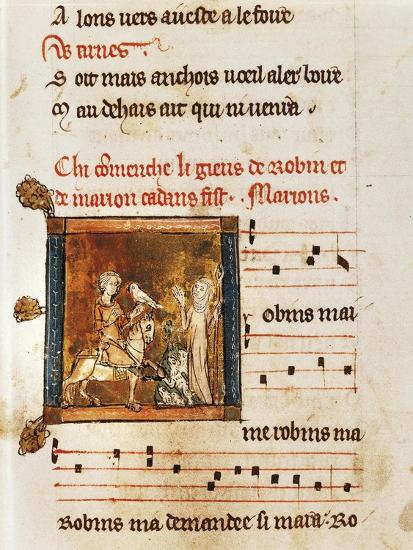 A lons vers aueste a le foire
Warnes
Soit mais anchois voeil aler boire
Mau dehais ait qui ni venra .
Chi comenche li gieus de Robin et
de marion cadans fist . Marions .
obins mai
me robins ma
Robins ma demandee si mara . Ro